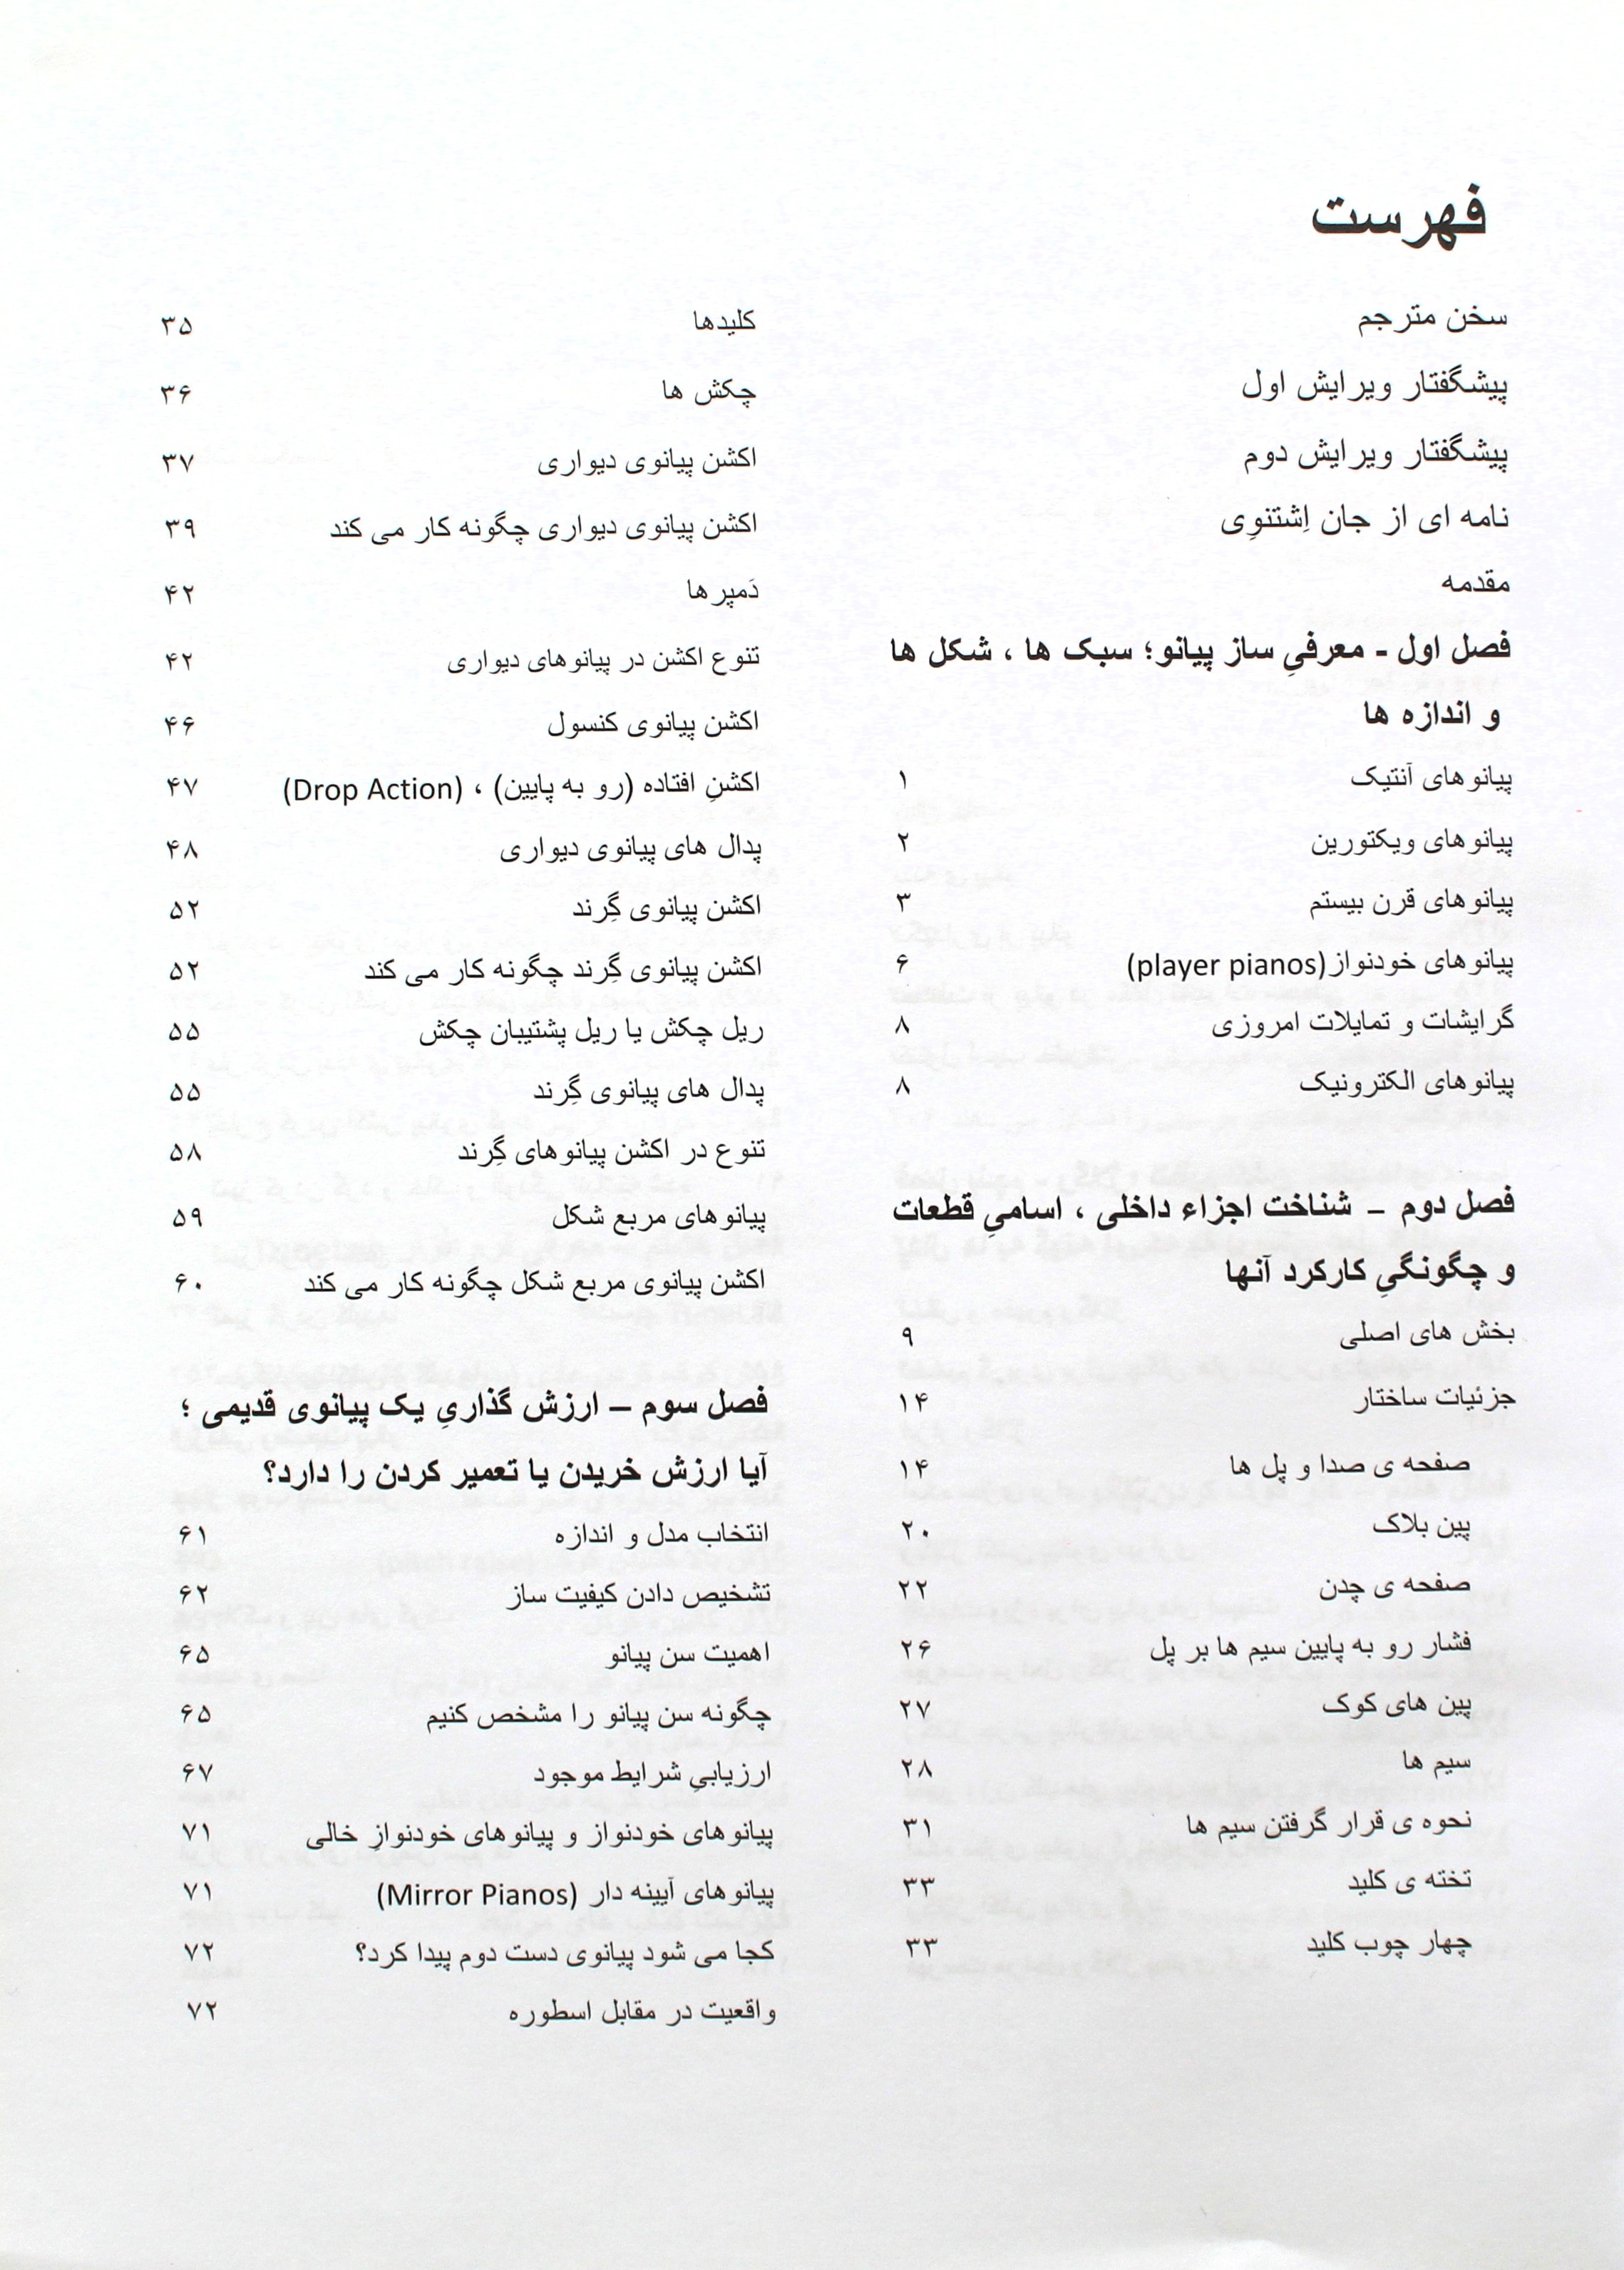 فهرست
سخن مترجم
پیشگفتار ویرایش اول
پیشگفتار ویرایش دوم
نامه ای از جان اِشتنوِی
مقدمه
فصل اول - معرفیِ ساز پیانو؛ سبک ها ، شکل ها
و اندازه ها
پیانوهای آنتیک ۱
پیانوهای ویکتورین ۲
پیانوهای قرن بیستم ۳
پیانوهای خودنواز(player pianos) ۶
گرایشات و تمایلات امروزی ۸
پیانوهای الکترونیک ۸
فصل دوم – شناخت اجزاء داخلی ، اسامیِ قطعات
و چگونگیِ کارکرد آنها
بخش های اصلی ۹
جزئیات ساختار ۱۴
صفحه ی صدا و پل ها ۱۴
پین بلاک ۲۰
صفحه ی چدن ۲۲
فشار رو به پایین سیم ها بر پل ۲۶
پین های کوک ۲۷
سیم ها ۲۸
نحوه ی قرار گرفتن سیم ها ۳۱
تخته ی کلید ۳۳
چهار چوب کلید ۳۳
کلیدها ۳۵
چکش ها ۳۶
اکشن پیانوی دیواری ۳۷
اکشن پیانوی دیواری چگونه کار می کند ۳۹
دَمپرها ۴۲
تنوع اکشن در پیانوهای دیواری ۴۲
اکشن پیانوی کنسول ۴۶
اکشنِ افتاده (رو به پایین) ، (Drop Action) ۴۷
پدال های پیانوی دیواری ۴۸
اکشن پیانوی گِرند ۵۲
اکشن پیانوی گِرند چگونه کار می کند ۵۲
ریل چکش یا ریل پشتیبان چکش ۵۵
پدال های پیانوی گِرند ۵۵
تنوع در اکشن پیانوهای گِرند ۵۸
پیانوهای مربع شکل ۵۹
اکشن پیانوی مربع شکل چگونه کار می کند ۶۰
فصل سوم – ارزش گذاریِ یک پیانوی قدیمی ؛
آیا ارزش خریدن یا تعمیر کردن را دارد؟
انتخاب مدل و اندازه ۶۱
تشخیص دادن کیفیت ساز ۶۲
اهمیت سن پیانو ۶۵
چگونه سن پیانو را مشخص کنیم ۶۵
ارزیابیِ شرایط موجود ۶۷
پیانوهای خودنواز و پیانوهای خودنوازِ خالی ۷۱
پیانوهای آیینه دار (Mirror Pianos) ۷۱
کجا می شود پیانوی دست دوم پیدا کرد؟ ۷۲
واقعیت در مقابل اسطوره ۷۲